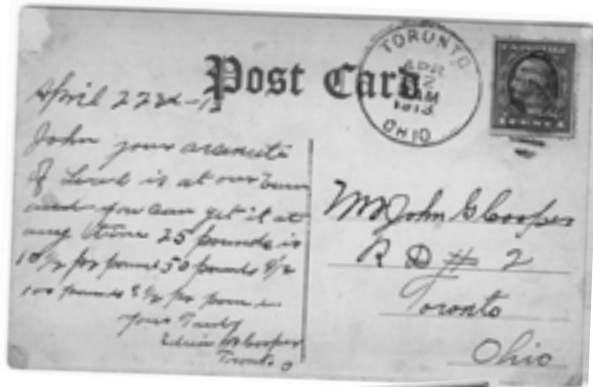 Post Card
TORONTO
APR
2
AM
1913
OHIO
April 22
John your
of is at our
and you can get it at
any time 25 pounds is
10 1/2 per pound 50 pounds 9 1/2
100 pounds 8 1/2 per pound
yours Truly
Edwin M Cooper
Toronto O
Mr John G Cooper
R D # 2
Toronto
Ohio